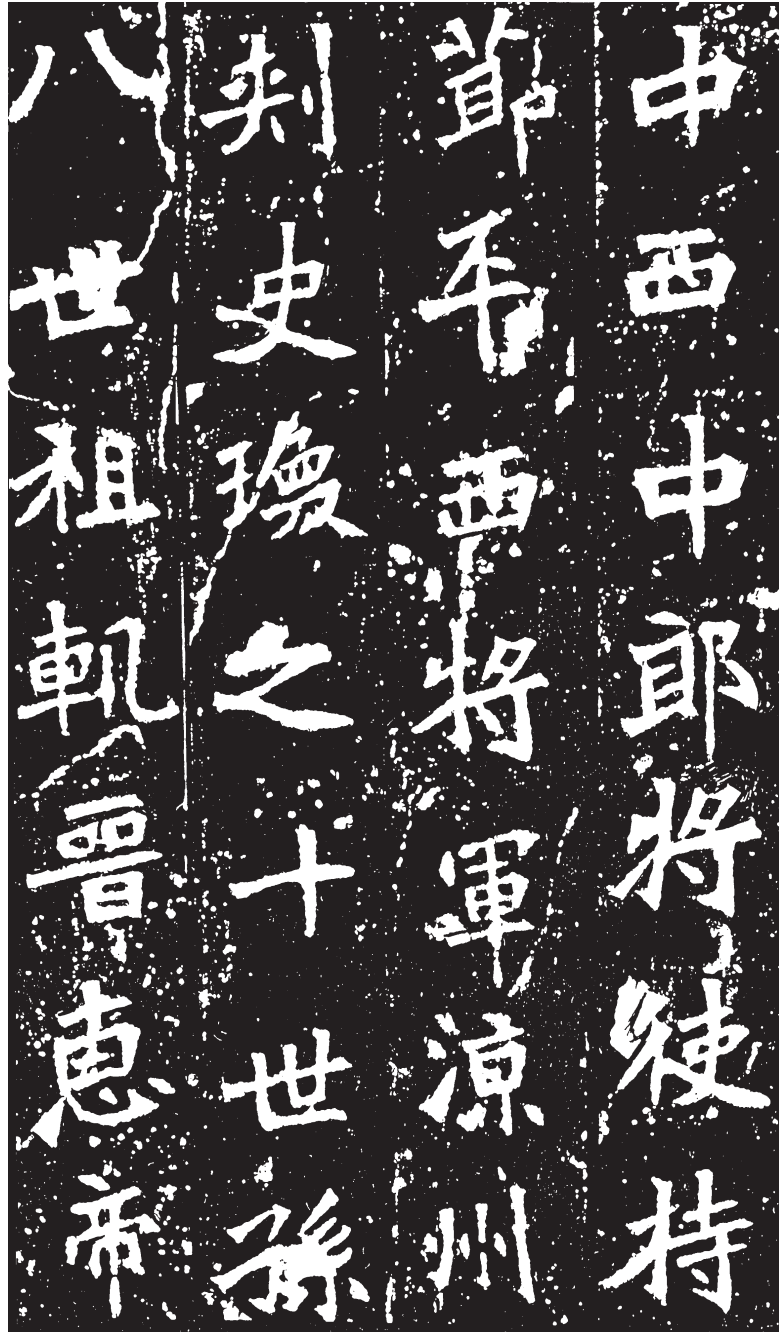 中西中郎將使持
節平西將軍涼州
刾史瑍之十世孫
八世祖軌晉惠帝